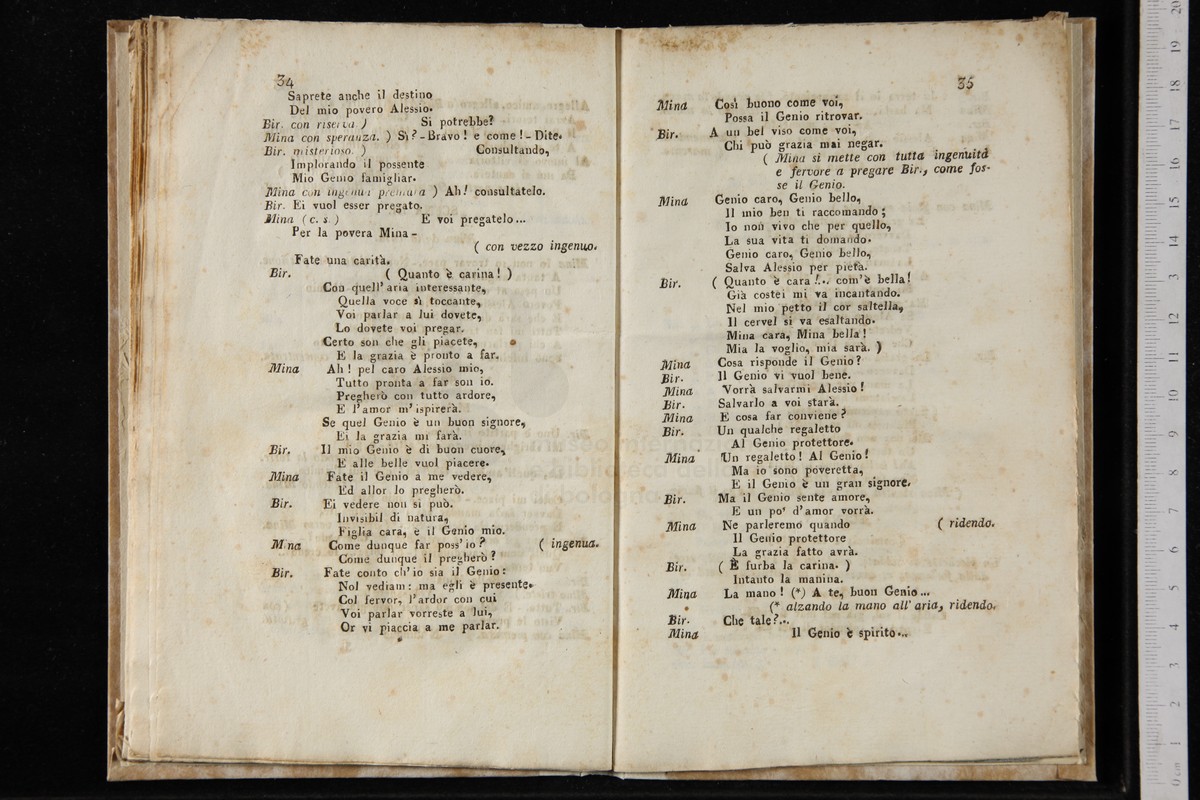 34
Saprete anche il destino
Del mio povero Alessio.
Bir. con riserva ) Si potrebbe?
Mina con speranza. ) Sì? - Bravo! e come! - Dite.
Bir. misterioso. ) Consultando,
Implorando il possente
Mio Genio famigliar.
Mina con ingenua premura ) Ah! consultatelo.
Bir. Ei vuol esser pregato.
Mina (c. s.) E voi pregatelo...
Per la povera Mina -
( con vezzo ingenuo.
Fate una carità.
Bir. ( Quanto è carina! )
Con quell'aria interessante,
Quella voce sì toccante,
Voi parlar a lui dovete,
Lo dovete voi pregar.
Certo son che gli piacete,
E la grazia è pronto a far.
Mina Ah! pel caro Alessio mio,
Tutto pronta a far son io.
Pregherò con tutto ardore,
E l'amor m'ispirerà.
Se quel Genio è un buon signore,
Ei la grazia mi farà.
Bir. Il mio Genio è di buon cuore,
E alle belle vuol piacere.
Mina Fate il Genio a me vedere,
Ed allor lo pregherò.
Bir. Ei vedere non si può.
Invisibil di natura,
Figlia cara, è il Genio mio.
M na Come dunque far poss'io? ( ingenua.
Come dunque il pregherò?
Bir. Fate conto ch'io sia il Genio:
Nol vediam: ma egli è presente.
Col fervor, l'ardor con cui
Voi parlar vorreste a lui,
Or vi piaccia a me parlar.
35
Mina Così buono come voi,
Possa il Genio ritrovar.
Bir. A un bel viso come voi,
Chi può grazia mai negar.
( Mina si mette con tutta ingenuità
e fervore a pregare Bir., come fos-
se il Genio.
Mina Genio caro, Genio bello,
Il mio ben ti raccomando;
Io non vivo che per quello,
La sua vita ti domando.
Genio caro, Genio bello,
Salva Alessio per pietà.
Bir. ( Quanto è cara!... com'è bella!
Già costei mi va incantando.
Nel mio petto il cor saltella,
Il cervel si va esaltando.
Mina cara, Mina bella!
Mia la voglio, mia sarà. )
Mina Cosa risponde il Genio?
Bir. Il Genio vi vuol bene.
Mina Vorrà salvarmi Alessio!
Bir. Salvarlo a voi starà.
Mina E cosa far conviene?
Bir. Un qualche regaletto
Al Genio protettore.
Mina Un regaletto! Al Genio!
Ma io sono poveretta,
E il Genio è un gran signore.
Bir. Ma il Genio sente amore,
E un po' d'amor vorrà.
Mina Ne parleremo quando ( ridendo.
Il Genio protettore
La grazia fatto avrà.
Bir. ( È furba la carina. )
Intanto la manina.
Mina La mano! (*) A te, buon Genio...
(* alzando la mano all'aria, ridendo.
Bir. Che tale?...
Mina Il Genio è spirito...